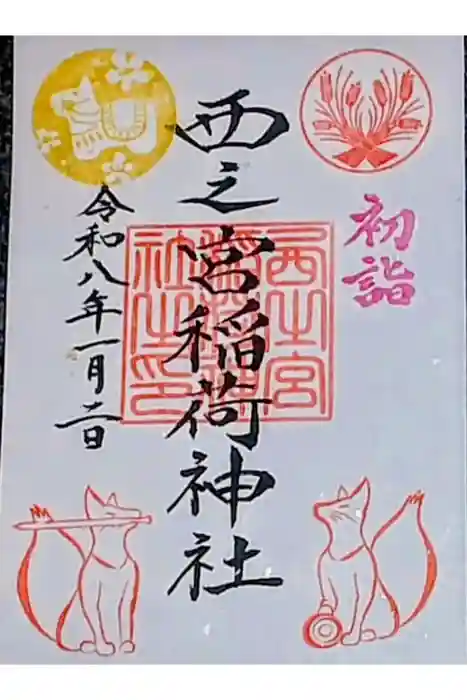 初詣
西之宮稲荷神社
令和八年一月二日
西之宮
稲荷神
社之印